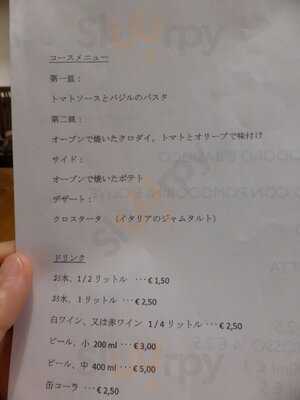 コースメニュー
第一皿：
トマトソースとバジルのパスタ
第二皿：
オーブンで焼いたクロダイ。トマトとオリーブで味付け
サイド：
オーブンで焼いたポテト
デザート：
クロスタータ （イタリアのジャムタルト）
ドリンク
お水、1/2 リットル ･･･€ 1,50
お水、1 リットル ･･･€ 2,50
白ワイン、又は赤ワイン 1/4 リットル ･･･€ 2,50
ビール、小 200 ml ･･･€ 3,00
ビール、中 400 ml ･･･€ 5,00
缶コーラ ･･･€ 2,50